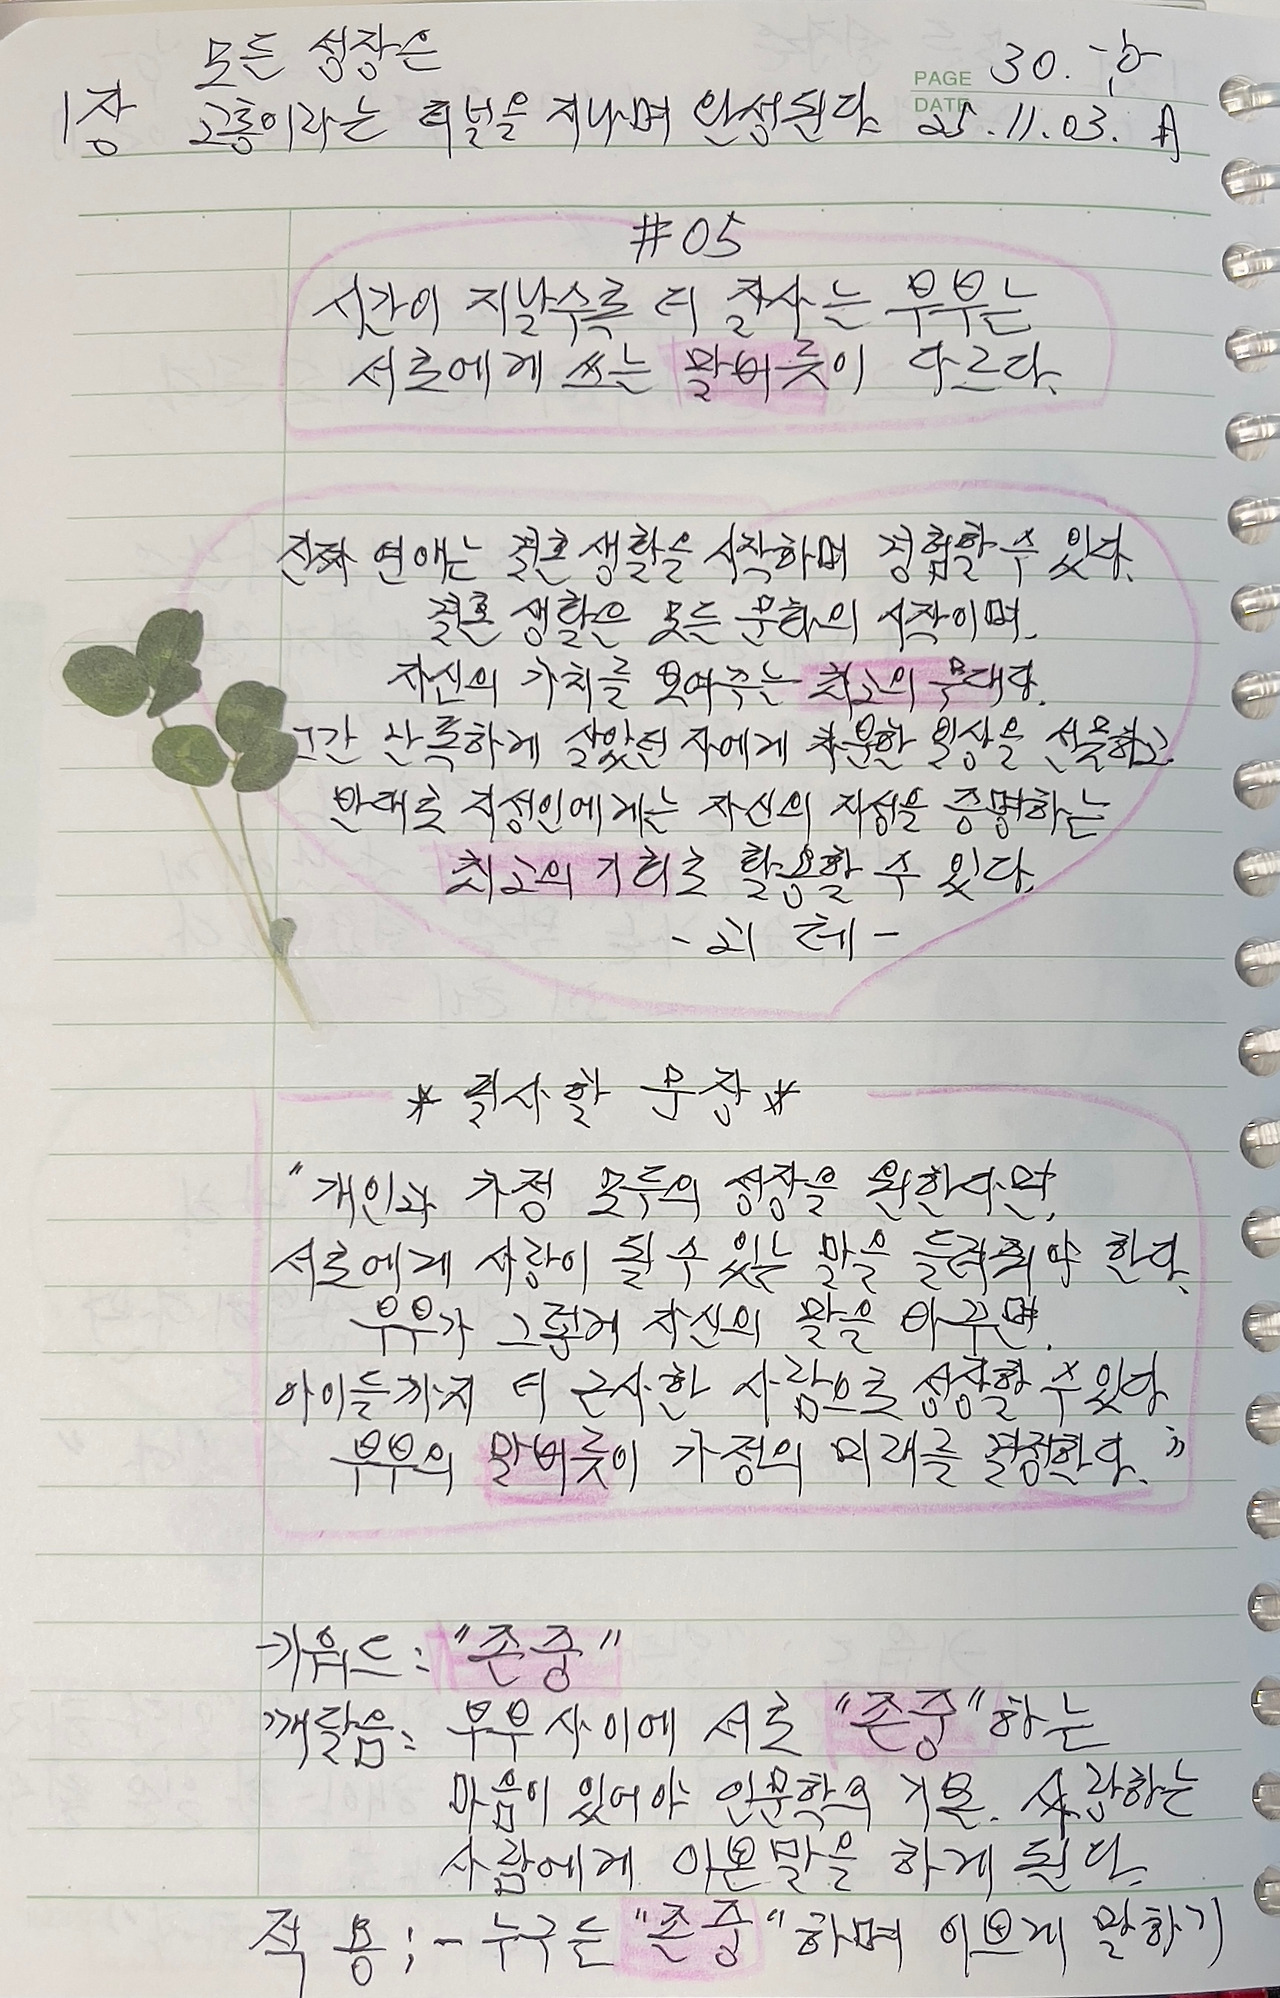 모든 성장은
1장 고통이라는 터널을 지나며 완성된다.
PAGE 30.
DATE 25.11.03.
#05
시간이 지날수록 더 잘사는 부부는
서로에게 쓰는 말버릇이 다르다.
진짜 연애는 결혼 생활을 시작하며 경험할 수 있다.
결혼 생활은 모든 문화의 시작이며,
자신의 가치를 보여주는 최고의 무대다.
그간 난폭하게 살았던 자에게 차분한 일상을 선물하고
반대로 지성인에게는 자신의 지성을 증명하는
최고의 기회로 활용할 수 있다.
- 괴테 -
* 필사할 문장 *
"개인과 가정 모두의 성장을 원한다면,
서로에게 사랑이 될 수 있는 말을 들려줘야 한다.
부부가 그렇게 자신의 말을 바꾸면,
아이들까지 더 근사한 사람으로 성장할 수 있다
부부의 말버릇이 가정의 미래를 결정한다."
키워드: "존중"
깨달음: 부부사이에 서로 "존중"하는
마음이 있어야 인문학의 기본. 사랑하는
사람에게 이쁜말을 하게 된다.
적용; - 누구든 "존중"하며 이쁘게 말하기